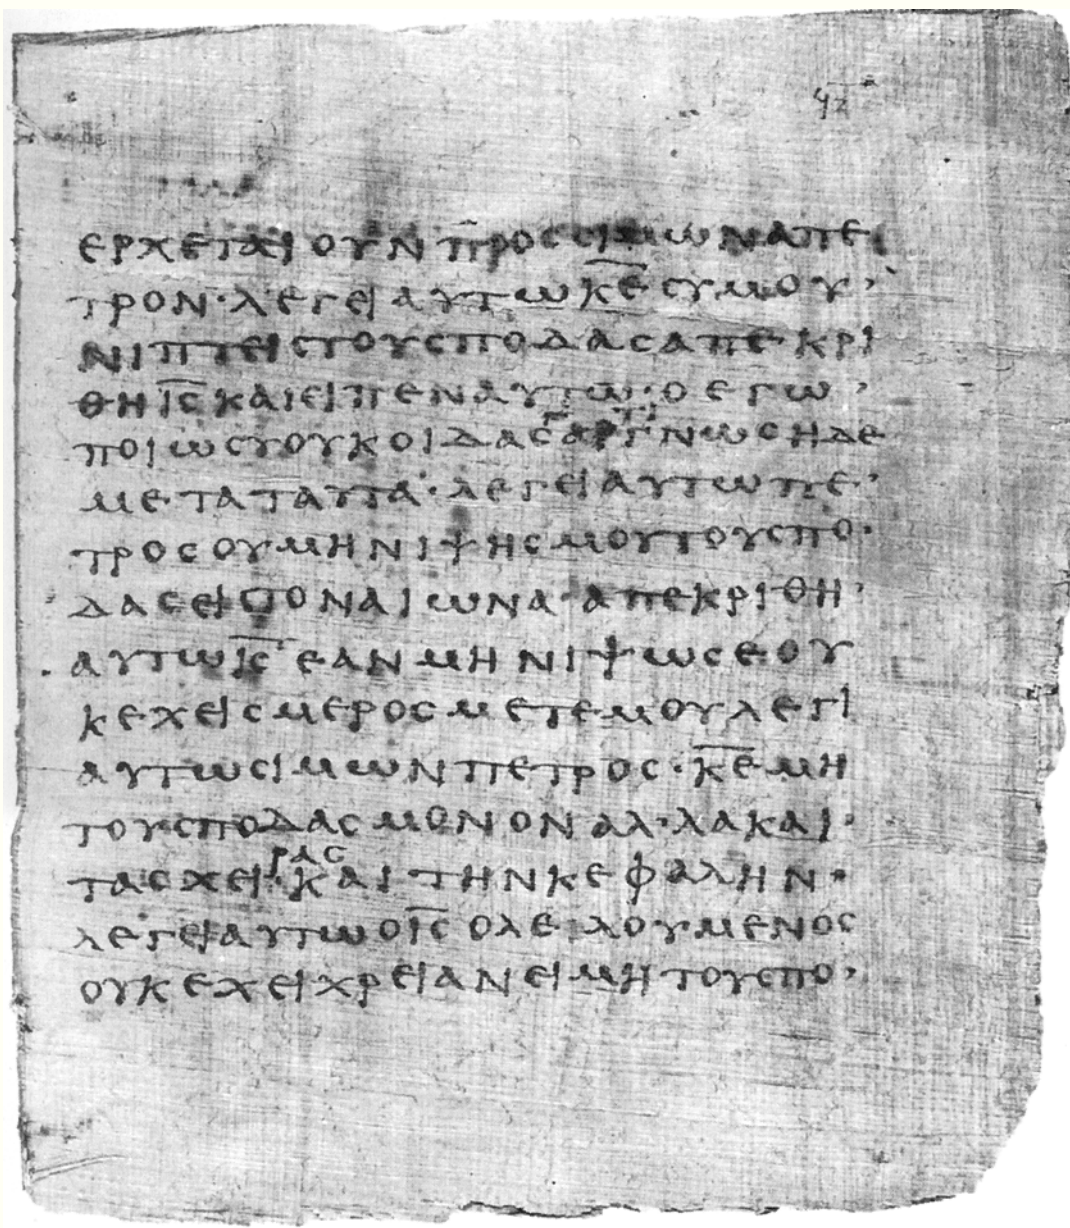 ΕΡΧΕΤΑΙ ΟΥΝ ΠΡΟΣ ΣΙΜΩΝΑ ΠΕ
ΤΡΟΝ· ΛΕΓΕΙ ΑΥΤΩ Κ̅Ε̅ ΣΥ ΜΟΥ
ΝΙΠΤΕΙΣ ΤΟΥΣ ΠΟΔΑΣ ΑΠΕΚΡΙ
ΘΗ Ι̅Σ̅ ΚΑΙ ΕΙΠΕΝ ΑΥΤΩ· Ο ΕΓΩ
ΠΟΙΩ ΣΥ ΟΥΚ ΟΙΔΑΣ ΑΡΤΙ ΓΝΩΣΗ ΔΕ
ΜΕΤΑ ΤΑΥΤΑ· ΛΕΓΕΙ ΑΥΤΩ ΠΕ
ΤΡΟΣ ΟΥ ΜΗ ΝΙΨΗΣ ΜΟΥ ΤΟΥΣ ΠΟ
ΔΑΣ ΕΙΣ ΤΟΝ ΑΙΩΝΑ· ΑΠΕΚΡΙΘΗ
ΑΥΤΩ Ι̅Σ̅ ΕΑΝ ΜΗ ΝΙΨΩ ΣΕ ΟΥ
Κ ΕΧΕΙΣ ΜΕΡΟΣ ΜΕΤ ΕΜΟΥ ΛΕΓΙ
ΑΥΤΩ ΣΙΜΩΝ ΠΕΤΡΟΣ· Κ̅Ε̅ ΜΗ
ΤΟΥΣ ΠΟΔΑΣ ΜΟΝΟΝ ΑΛΛΑ ΚΑΙ
ΤΑΣ ΧΕΙΡΑΣ· ΚΑΙ ΤΗΝ ΚΕΦΑΛΗΝ·
ΛΕΓΕΙ ΑΥΤΩ Ο Ι̅Σ̅ Ο ΛΕΛΟΥΜΕΝΟΣ
ΟΥΚ ΕΧΕΙ ΧΡΕΙΑΝ ΕΙ ΜΗ ΤΟΥΣ ΠΟ